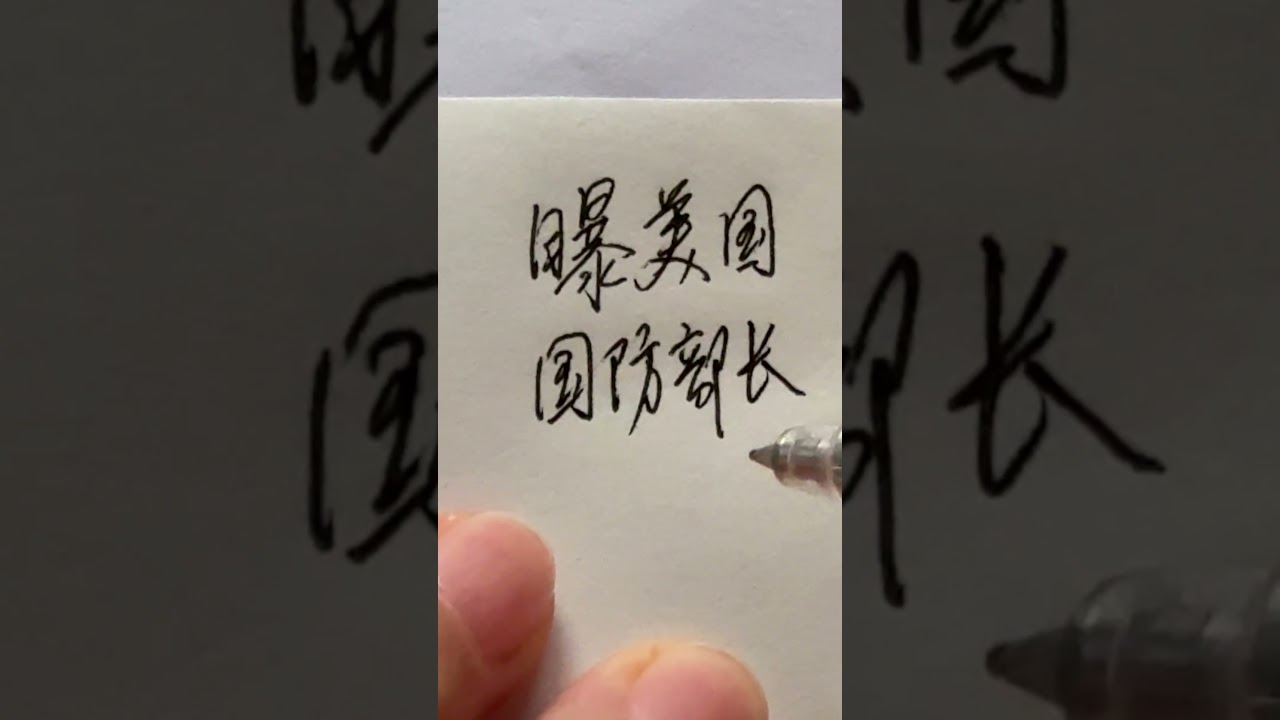 曝美国
国防部长